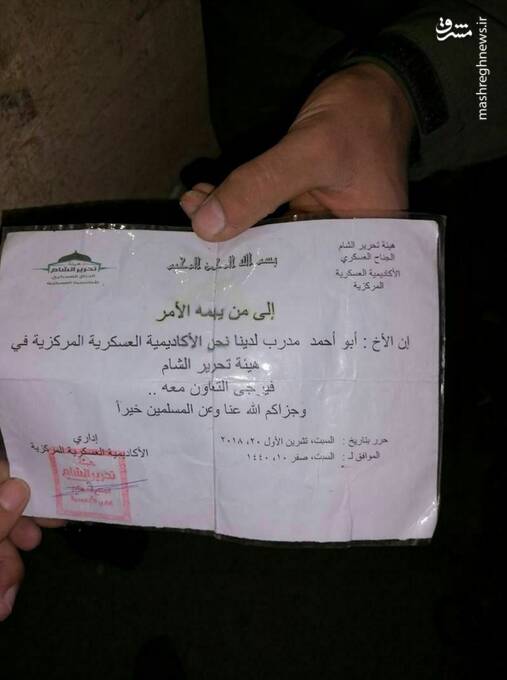 مشرق
mashreghnews.ir
هيئة تحرير الشام
الجناح العسكري
الأكاديمية العسكرية
المركزية
بسم الله الرحمن الرحيم
هيئة
تحرير الشام
إلى من يهمه الأمر
إن الأخ : أبو أحمد مدرب لدينا نحن الأكاديمية العسكرية المركزية في
هيئة تحرير الشام
فيرجى التعاون معه ..
وجزاكم الله عنا وعن المسلمين خيراً
حرر بتاريخ : السبت، تشرين الأول ٢٠، ٢٠١٨
الموافق لـ : السبت، صفر ١٠، ١٤٤٠
إداري
الأكاديمية العسكرية المركزية
هيئة
تحرير الشام